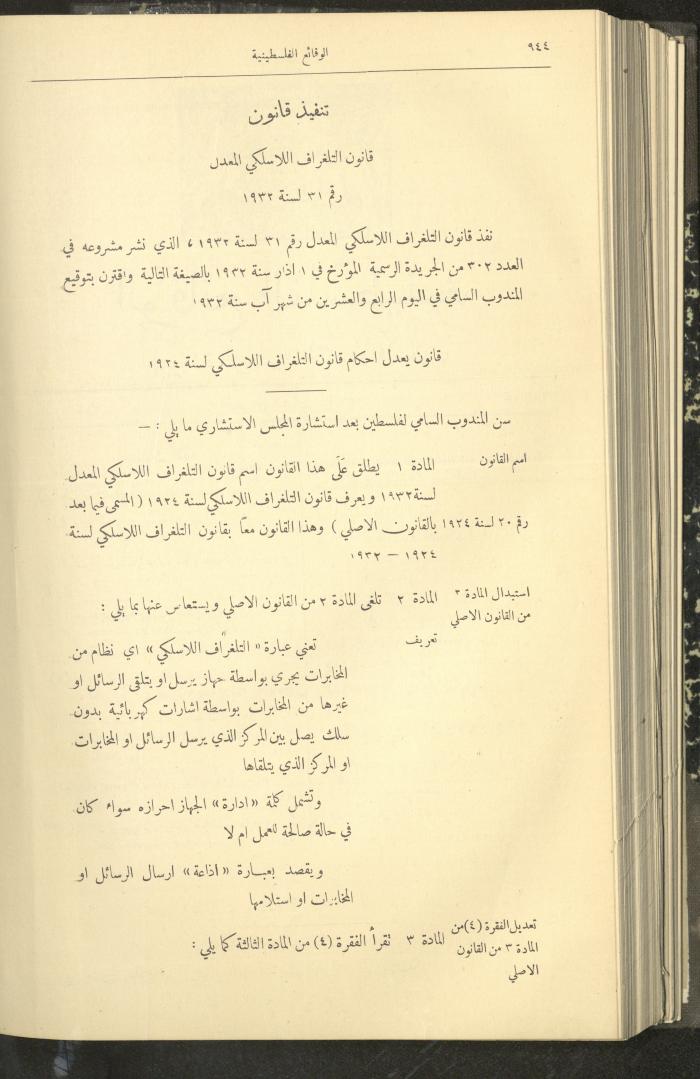 ٩٤٤
الوقائع الفلسطينية
تنفيذ قانون
قانون التلغراف اللاسلكي المعدل
رقم ٣١ لسنة ١٩٣٢
نفذ قانون التلغراف اللاسلكي المعدل رقم ٣١ لسنة ١٩٣٢ ، الذي نشر مشروعه في
العدد ٣٠٢ من الجريدة الرسمية المؤرخ في ١ اذار سنة ١٩٣٢ بالصيغة التالية واقترن بتوقيع
المندوب السامي في اليوم الرابع والعشرين من شهر آب سنة ١٩٣٢
قانون يعدل احكام قانون التلغراف اللاسلكي لسنة ١٩٢٤
سن المندوب السامي لفلسطين بعد استشارة المجلس الاستشاري ما يلي : —
اسم القانون
المادة ١ يطلق عَلَى هذا القانون اسم قانون التلغراف اللاسلكي المعدل
لسنة ١٩٣٢ ويعرف قانون التلغراف اللاسلكي لسنة ١٩٢٤ ( المسمى فيما بعد
رقم ٢٠ لسنة ١٩٢٤ بالقانون الاصلي ) وهذا القانون معاً بقانون التلغراف اللاسلكي لسنة
١٩٢٤ — ١٩٣٢
استبدال المادة ٢
من القانون الاصلي
المادة ٢ تلغى المادة ٢ من القانون الاصلي ويستعاض عنها بما يلي :
تعريف
تعني عبارة « التلغراف اللاسلكي » اي نظام من
المخابرات يجري بواسطة جهاز يرسل او يتلقى الرسائل او
غيرها من المخابرات بواسطة اشارات كهربائية بدون
سلك يصل بين المركز الذي يرسل الرسائل او المخابرات
او المركز الذي يتلقاها
وتشمل كلمة « ادارة » الجهاز احرازه سواء كان
في حالة صالحة للعمل ام لا
ويقصد بعبارة « اذاعة » ارسال الرسائل او
المخابرات او استلامها
تعديل الفقرة (٤) من
المادة ٣ من القانون
الاصلي
المادة ٣ تقرأ الفقرة (٤) من المادة الثالثة كما يلي :